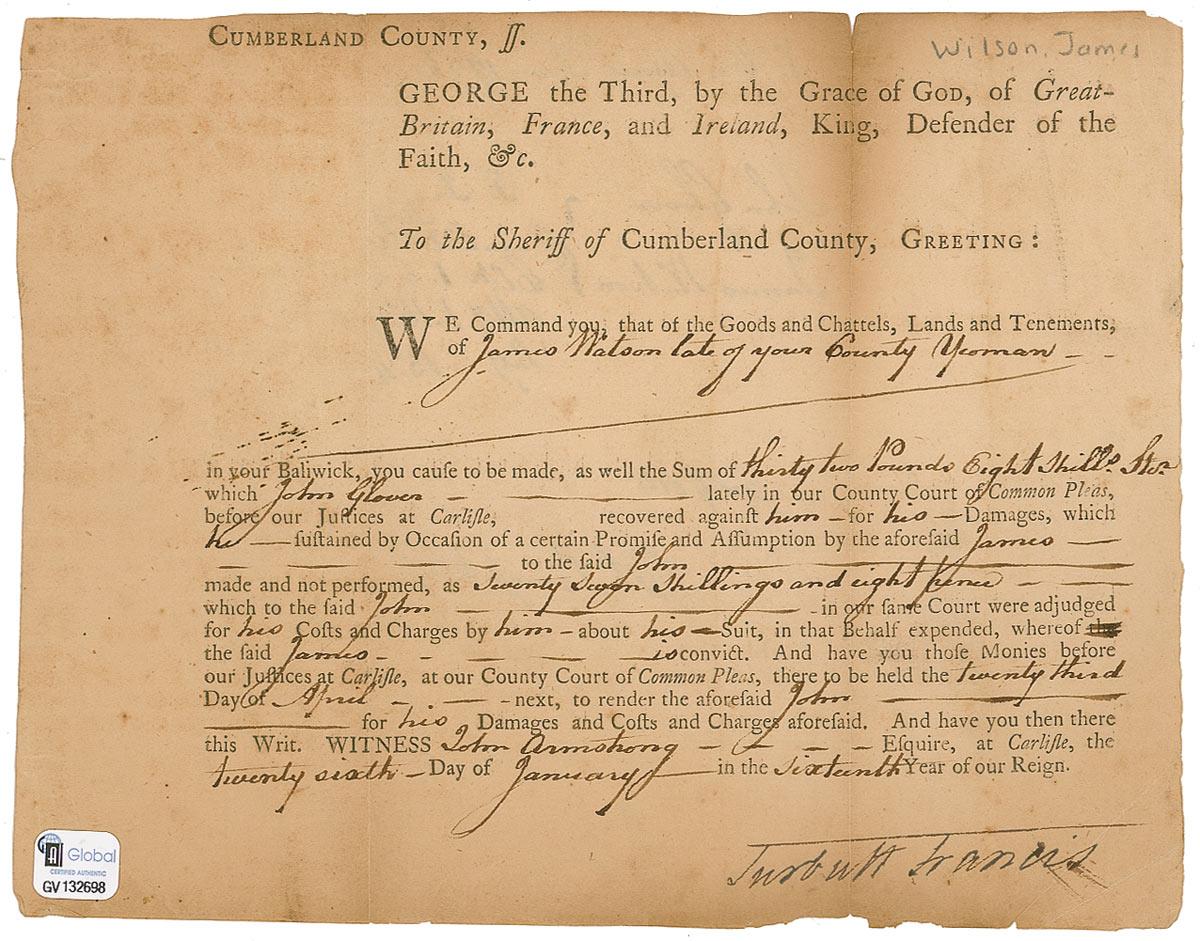 CUMBERLAND COUNTY, ſſ.
Wilson, James
GEORGE the Third, by the Grace of GOD, of Great-
Britain, France, and Ireland, King, Defender of the
Faith, &c.
To the Sheriff of Cumberland County, GREETING:
WE Command you, that of the Goods and Chattels, Lands and Tenements,
of James Watson late of your County Yeoman - -
in your Baliwick, you cause to be made, as well the Sum of thirty two Pounds Eight Shills. Ster
which John Glover - — lately in our County Court of Common Pleas,
before our Juſtices at Carliſle, recovered againſt him - for his - Damages, which
he — ſuſtained by Occaſion of a certain Promiſe and Aſſumption by the aforeſaid James —
- — — — — to the ſaid John — — — —
made and not performed, as Twenty Seven Shillings and eight pence - —
which to the ſaid John — — — - in our ſame Court were adjudged
for his Coſts and Charges by him - about his - Suit, in that Behalf expended, whereof
the ſaid James - - — — — is convict. And have you thoſe Monies before
our Juſtices at Carliſle, at our County Court of Common Pleas, there to be held the twenty third
Day of April - - — - next, to render the aforeſaid John — —
— for his Damages and Coſts and Charges aforeſaid. And have you then there
this Writ. WITNESS John Armstrong - - - - Eſquire, at Carliſle, the
twenty sixth - Day of January — in the Sixteenth Year of our Reign.
Turbutt Francis
Global
CERTIFIED AUTHENTIC
GV 132698